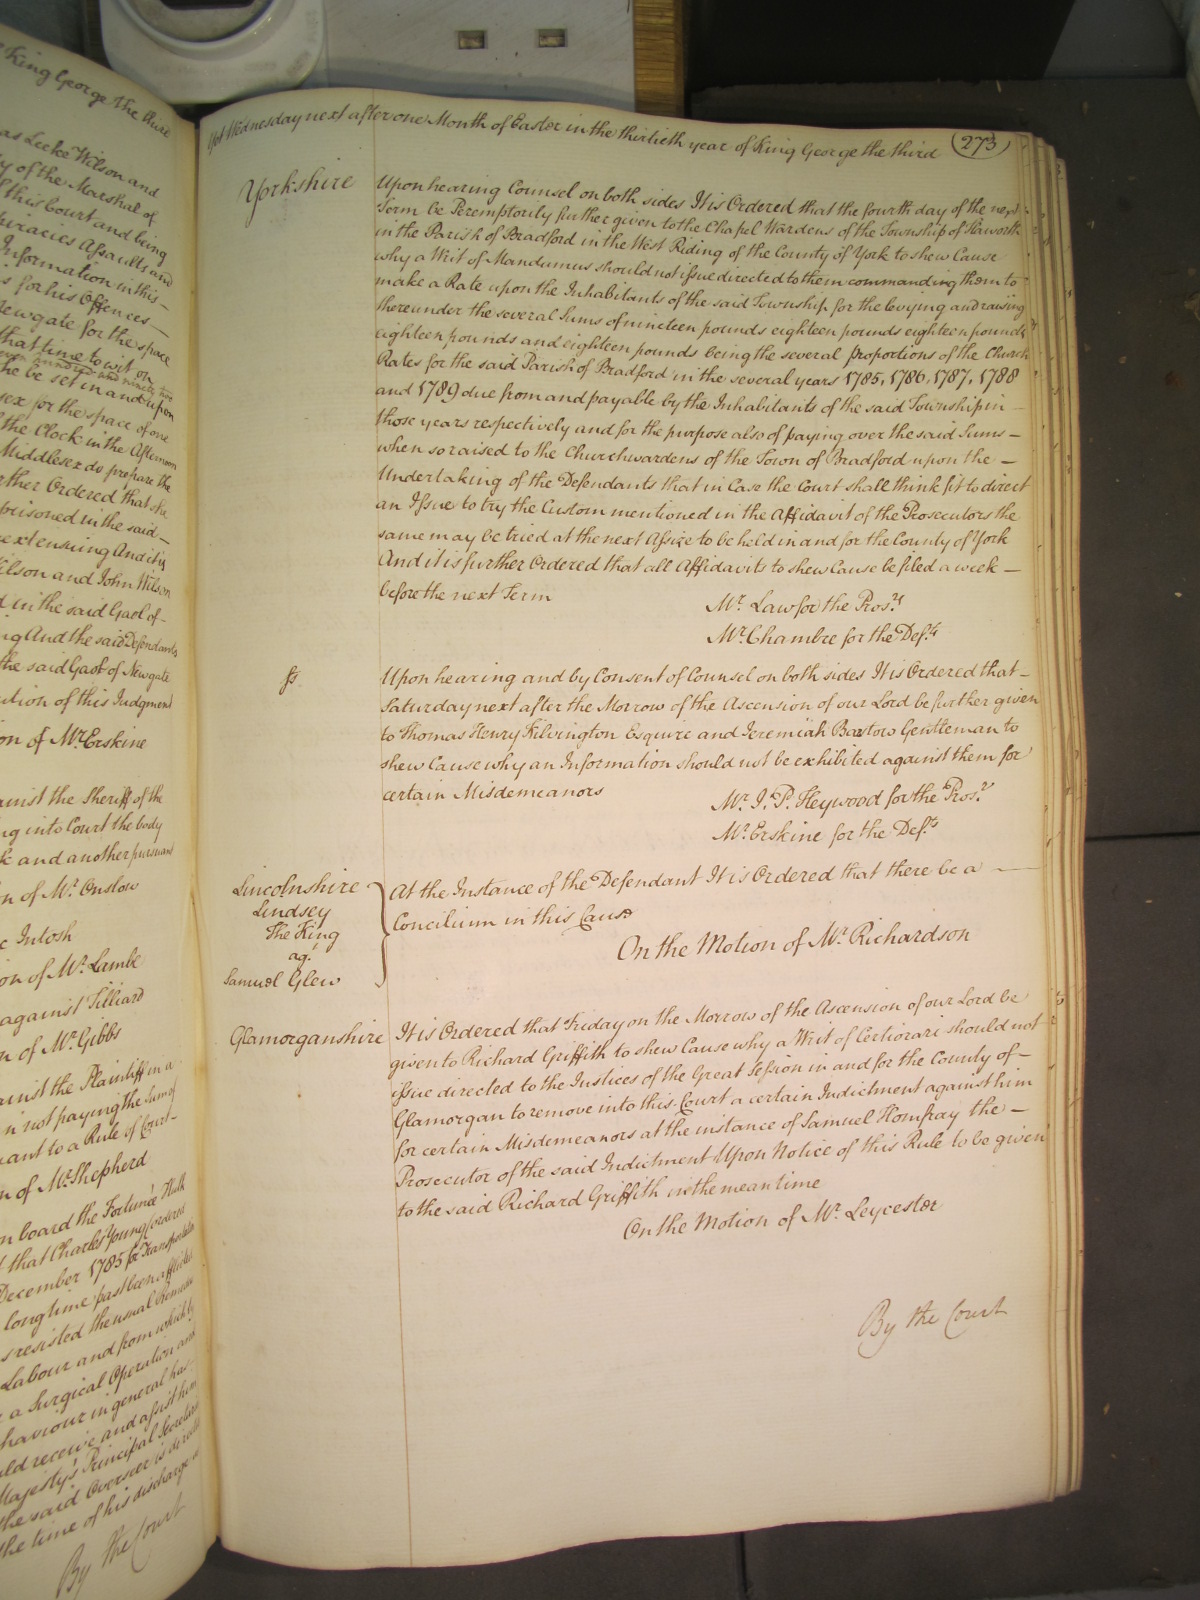 King George the third
as Leeke Wilson and
y of the Marshal of
f this Court and being
piracies Assaults and
Information in this
s for his Offences
Newgate for the space
that time to wit on
hundred and ninety two
he be set in and upon
sex for the space of one
the Clock in the Afternoon
Middlesex do prepare the
rther Ordered that she
prisoned in the said
ext ensuing And it is
Wilson and John Wilson
d in the said Gaol of
ng And the said Defendants
the said Gaol of Newgate
ution of this Judgment
on of Mr. Erskine
ainst the Sheriff of the
ng into Court the body
k and another pursuant
n of Mr. Onslow
c Intosh
on of Mr. Lambe
against Tilliard
n of Mr. Gibbs
ainst the Plaintiff in a
n not paying the Sum of
uant to a Rule of Court
n of Mr. Shepherd
n board the Fortunée Hulk
d that Charles Young (ordered
December 1785 for Transportation
long time past been afflicted
s resisted the usual Remedies
Labour and from which by
r a Surgical Operation and
haviour in general has
uld receive and assist him
Majesty's Principal Secretaries
the said Overseer is directed
the time of his discharge
By the Court
Yet Wednesday next after one Month of Easter in the thirtieth year of King George the third 273
Yorkshire Upon hearing Counsel on both sides It is Ordered that the fourth day of the next
Term be Peremptorily further given to the Chapel Wardens of the Township of Haworth
in the Parish of Bradford in the West Riding of the County of York to shew Cause
why a Writ of Mandamus should not issue directed to them commanding them to
make a Rate upon the Inhabitants of the said Township for the levying and raising
thereunder the several Sums of nineteen pounds eighteen pounds eighteen pounds
eighteen pounds and eighteen pounds being the several proportions of the Church
Rates for the said Parish of Bradford in the several years 1785, 1786, 1787, 1788
and 1789 due from and payable by the Inhabitants of the said Township in
those years respectively and for the purpose also of paying over the said Sums
when so raised to the Churchwardens of the Town of Bradford upon the
Undertaking of the Defendants that in Case the Court shall think fit to direct
an Issue to try the Custom mentioned in the Affidavit of the Prosecutors the
same may be tried at the next Assize to be held in and for the County of York
And it is further Ordered that all Affidavits to shew Cause be filed a week
before the next Term
Mr. Law for the Prosrs
Mr. Chambre for the Defts
ss Upon hearing and by Consent of Counsel on both sides It is Ordered that
Saturday next after the Morrow of the Ascension of our Lord be further given
to Thomas Henry Kilvington Esquire and Jeremiah Barstow Gentleman to
shew Cause why an Information should not be exhibited against them for
certain Misdemeanors
Mr. J. P. Heywood for the Prosr
Mr. Erskine for the Defts
Lincolnshire
Lindsey
The King
agt
Samuel Glew
At the Instance of the Defendant It is Ordered that there be a
Concilium in this Cause
On the Motion of Mr. Richardson
Glamorganshire It is Ordered that Friday on the Morrow of the Ascension of our Lord be
given to Richard Griffith to shew Cause why a Writ of Certiorari should not
issue directed to the Justices of the Great Session in and for the County of
Glamorgan to remove into this Court a certain Indictment against him
for certain Misdemeanors at the instance of Samuel Homfray the
Prosecutor of the said Indictment Upon Notice of this Rule to be given
to the said Richard Griffith in the mean time
On the Motion of Mr. Leycester
By the Court